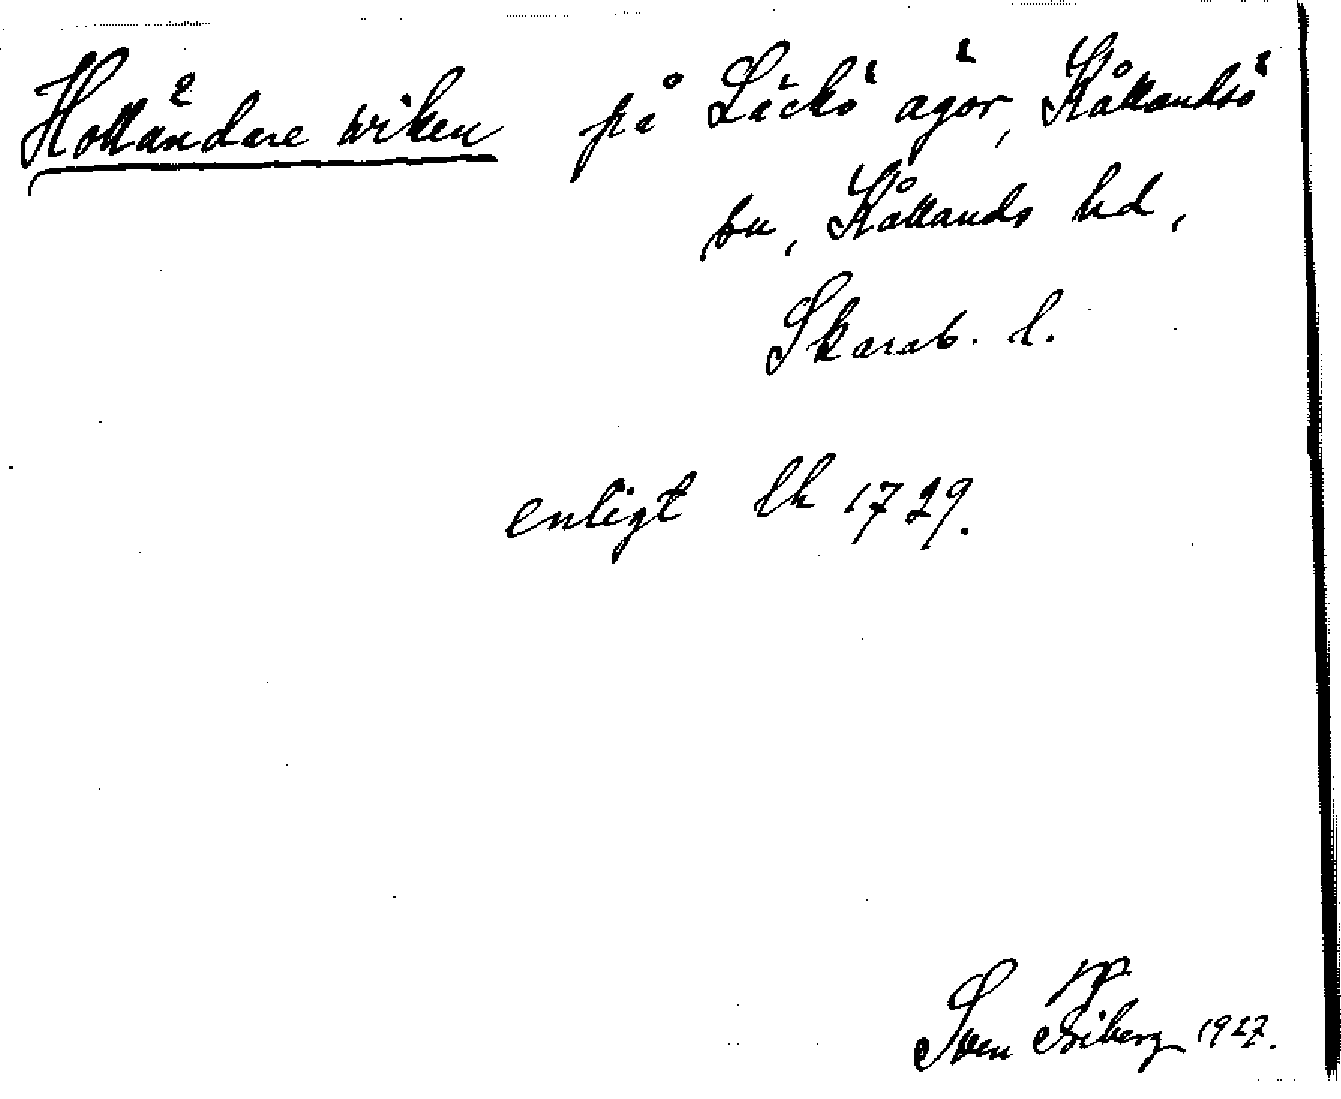 Holländare wiken på Läckö ägor, Kållandsö
sn, Kållands hd,
Skarab. l.
enligt lk 1729.
Sven Ekberg 1927.